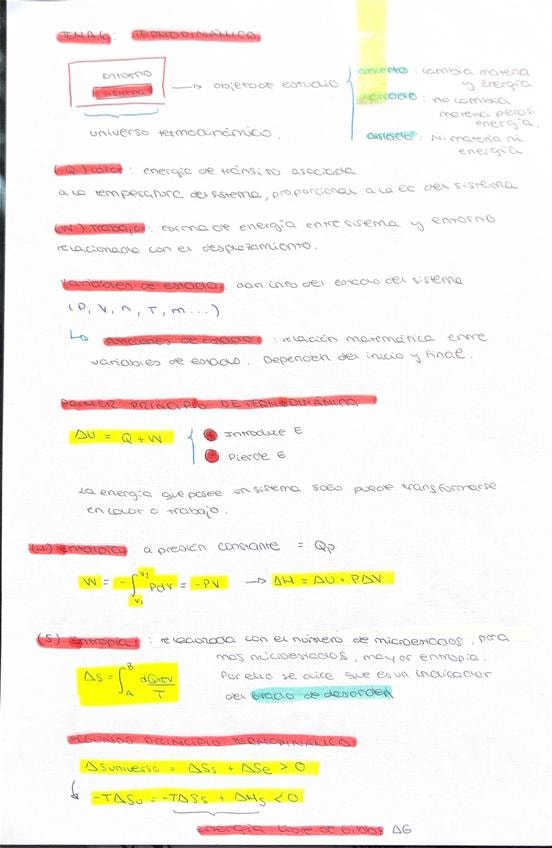 TEMA 6: TERMODINÁMICA
ENTORNO
sistema
→ objeto de estudio
abierto: cambia materia
y energía
cerrado: no cambia
materia pero sí
energía.
aislado: Ni materia ni
energía
universo termodinámico.
(Q) calor: energía de tránsito asociada
a la temperatura del sistema, proporcional a la Ec del sistema
(W) Trabajo: forma de energía entre sistema y entorno
relacionada con el desplazamiento.
variables de estado: dan info del estado del sistema
(P, V, n, T, m...)
↳ funciones de estado: relación matemática entre
variables de estado. Dependen del inicio y final.
PRIMER PRINCIPIO DE TERMODINÁMICA
ΔU = Q + W
+ Introduce E
- Pierde E
La energía que posee un sistema solo puede transformarse
en calor o trabajo.
(H) entalpía a presión constante = Qp
W = -∫V1V2 PdV = -PV → ΔH = ΔU + PΔV
(S) Entropía: relacionada con el número de microestados, para
más microestados, mayor entropía.
ΔS = ∫AB dQrev/T
Por ello se dice que es un indicador
del grado de desorden
SEGUNDO PRINCIPIO TERMODINÁMICA
ΔSuniverso = ΔSs + ΔSe > 0
↳ -TΔSu = -TΔSs + ΔHs < 0
energía libre de Gibbs ΔG